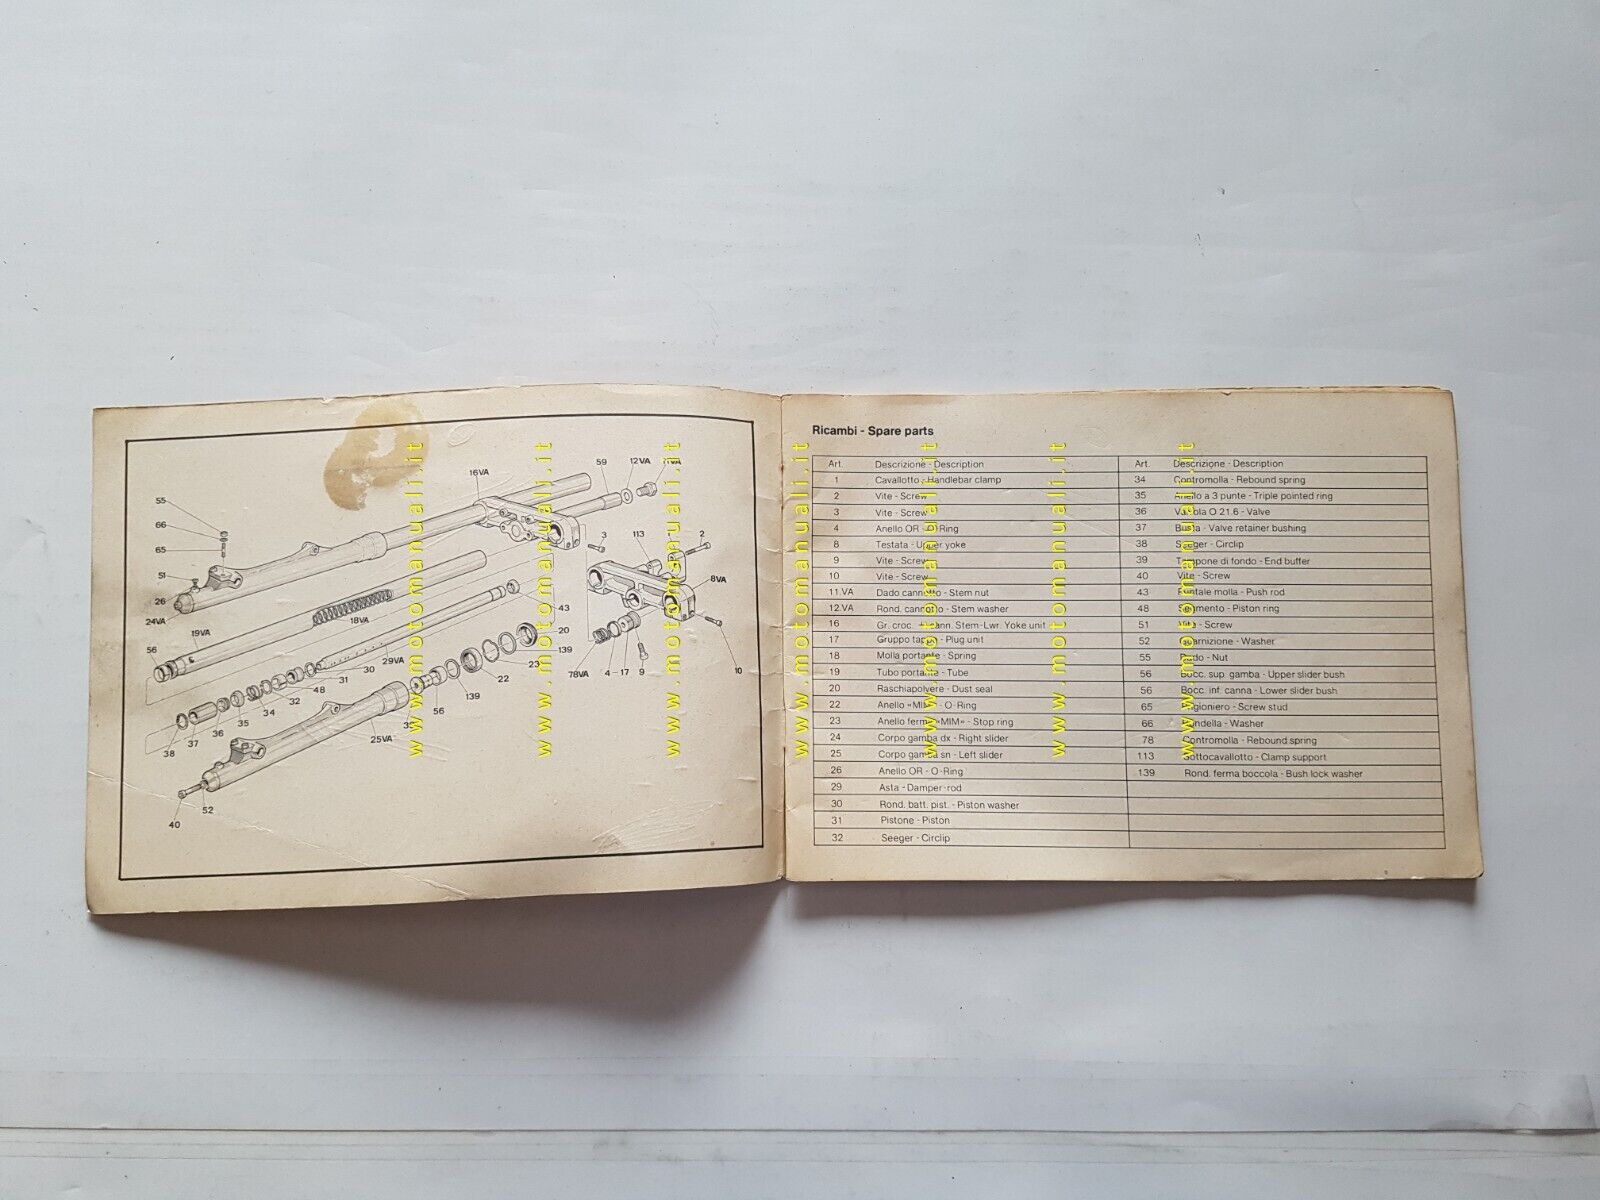 16VA
59
12VA
11VA
55
66
65
51
26
24VA
3
113
2
8VA
18VA
19VA
56
43
20
139
23
22
29VA
30
31
48
32
34
35
36
37
38
56
139
78VA
4-17
9
10
25VA
52
40
Ricambi - Spare parts
Art. Descrizione - Description
1 Cavallotto - Handlebar clamp
2 Vite - Screw
3 Vite - Screw
4 Anello OR - O-Ring
8 Testata - Upper yoke
9 Vite - Screw
10 Vite - Screw
11.VA Dado cannotto - Stem nut
12.VA Rond. cannotto - Stem washer
16 Gr. croc. + cann. Stem-Lwr. Yoke unit
17 Gruppo tappo - Plug unit
18 Molla portante - Spring
19 Tubo portante - Tube
20 Raschiapolvere - Dust seal
22 Anello «MIM» - O-Ring
23 Anello fermo «MIM» - Stop ring
24 Corpo gamba dx - Right slider
25 Corpo gamba sn - Left slider
26 Anello OR - O-Ring
29 Asta - Damper-rod
30 Rond. batt. pist. - Piston washer
31 Pistone - Piston
32 Seeger - Circlip
Art. Descrizione - Description
34 Contromolla - Rebound spring
35 Anello a 3 punte - Triple pointed ring
36 Valvola O 21.6 - Valve
37 Bussola - Valve retainer bushing
38 Seeger - Circlip
39 Tampone di fondo - End buffer
40 Vite - Screw
43 Puntale molla - Push rod
48 Segmento - Piston ring
51 Vite - Screw
52 Guarnizione - Washer
55 Dado - Nut
56 Bocc. sup. gamba - Upper slider bush
56 Bocc. inf. canna - Lower slider bush
65 Prigioniero - Screw stud
66 Rondella - Washer
78 Contromolla - Rebound spring
113 Sottocavallotto - Clamp support
139 Rond. ferma boccola - Bush lock washer
www.motomanuali.it
www.motomanuali.it
www.motomanuali.it
www.motomanuali.it
www.motomanuali.it
www.motomanuali.it
www.motomanuali.it